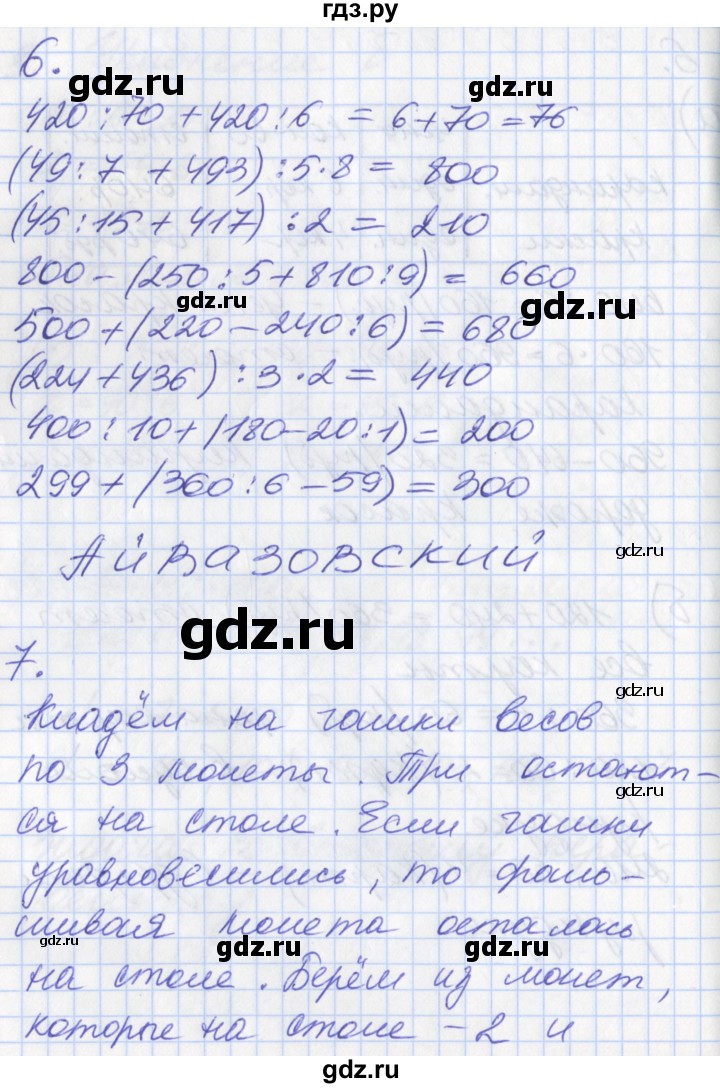 гдз.ру
6.
gdz.ru
gdz.ru
420 : 70 + 420 : 6 = 6 + 70 = 76
(49 : 7 + 493) : 5 · 8 = 800
(45 : 15 + 417) : 2 = 210
800 - (250 : 5 + 810 : 9) = 660
gdz.ru
gdz.ru
500 + (220 - 240 : 6) = 680
(224 + 436) : 3 · 2 = 440
400 : 10 + (180 - 20 : 1) = 200
gdz.ru
gdz.ru
299 + (360 : 6 - 59) = 300
АЙВАЗОВСКИЙ
gdz.ru
gdz.ru
7.
gdz.ru
Кладём на чашки весов
по 3 монеты. Три остают-
gdz.ru
ся на столе. Если чашки
уравновесились, то фаль-
шивая монета осталась
gdz.ru
gdz.ru
gdz.ru
на столе. Берём из монет,
gdz.ru
которые на столе - 2 и
gdz.ru